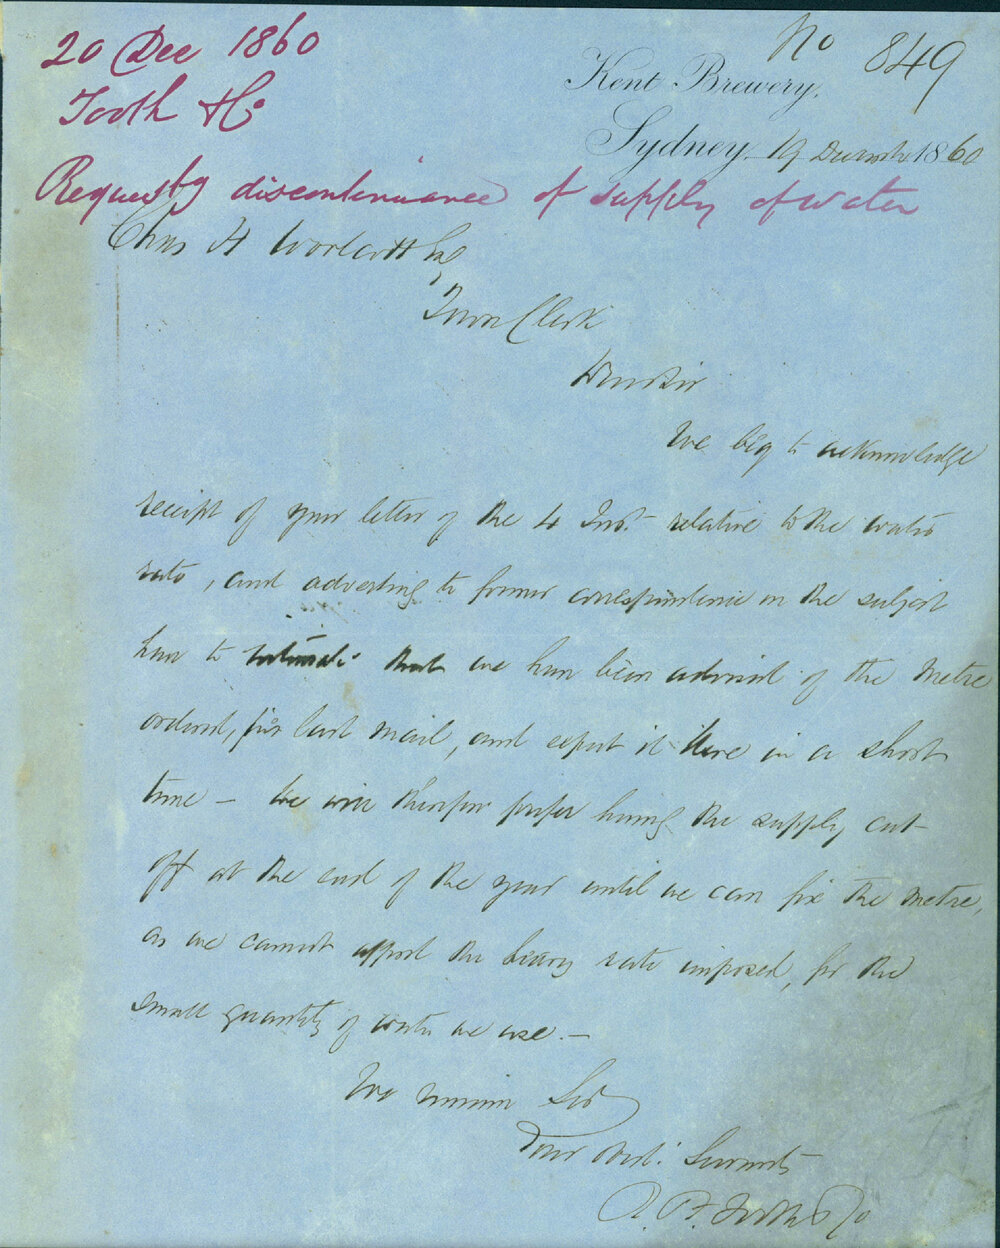 20 Dec 1860
Tooth & Co
Requestg discontinuance of supply of water
No 849
Kent Brewery,
Sydney, 19 December 1860
Chas H Woolcott Esq
Town Clerk
Dear Sir
We beg to acknowledge
receipt of your letter of the 4 Inst. relative to the water
rate, and adverting to former correspondence on the subject
have to intimate that we have been advised of the Metre
ordered, per last mail, and expect it here in a short
time – We will therefore prefer having the supply cut
off at the end of the year until we can fix the Metre,
as we cannot afford the heavy rate imposed, for the
small quantity of water we use. –
We remain Sir
Your Obed. Servants
R. & F. Tooth & Co